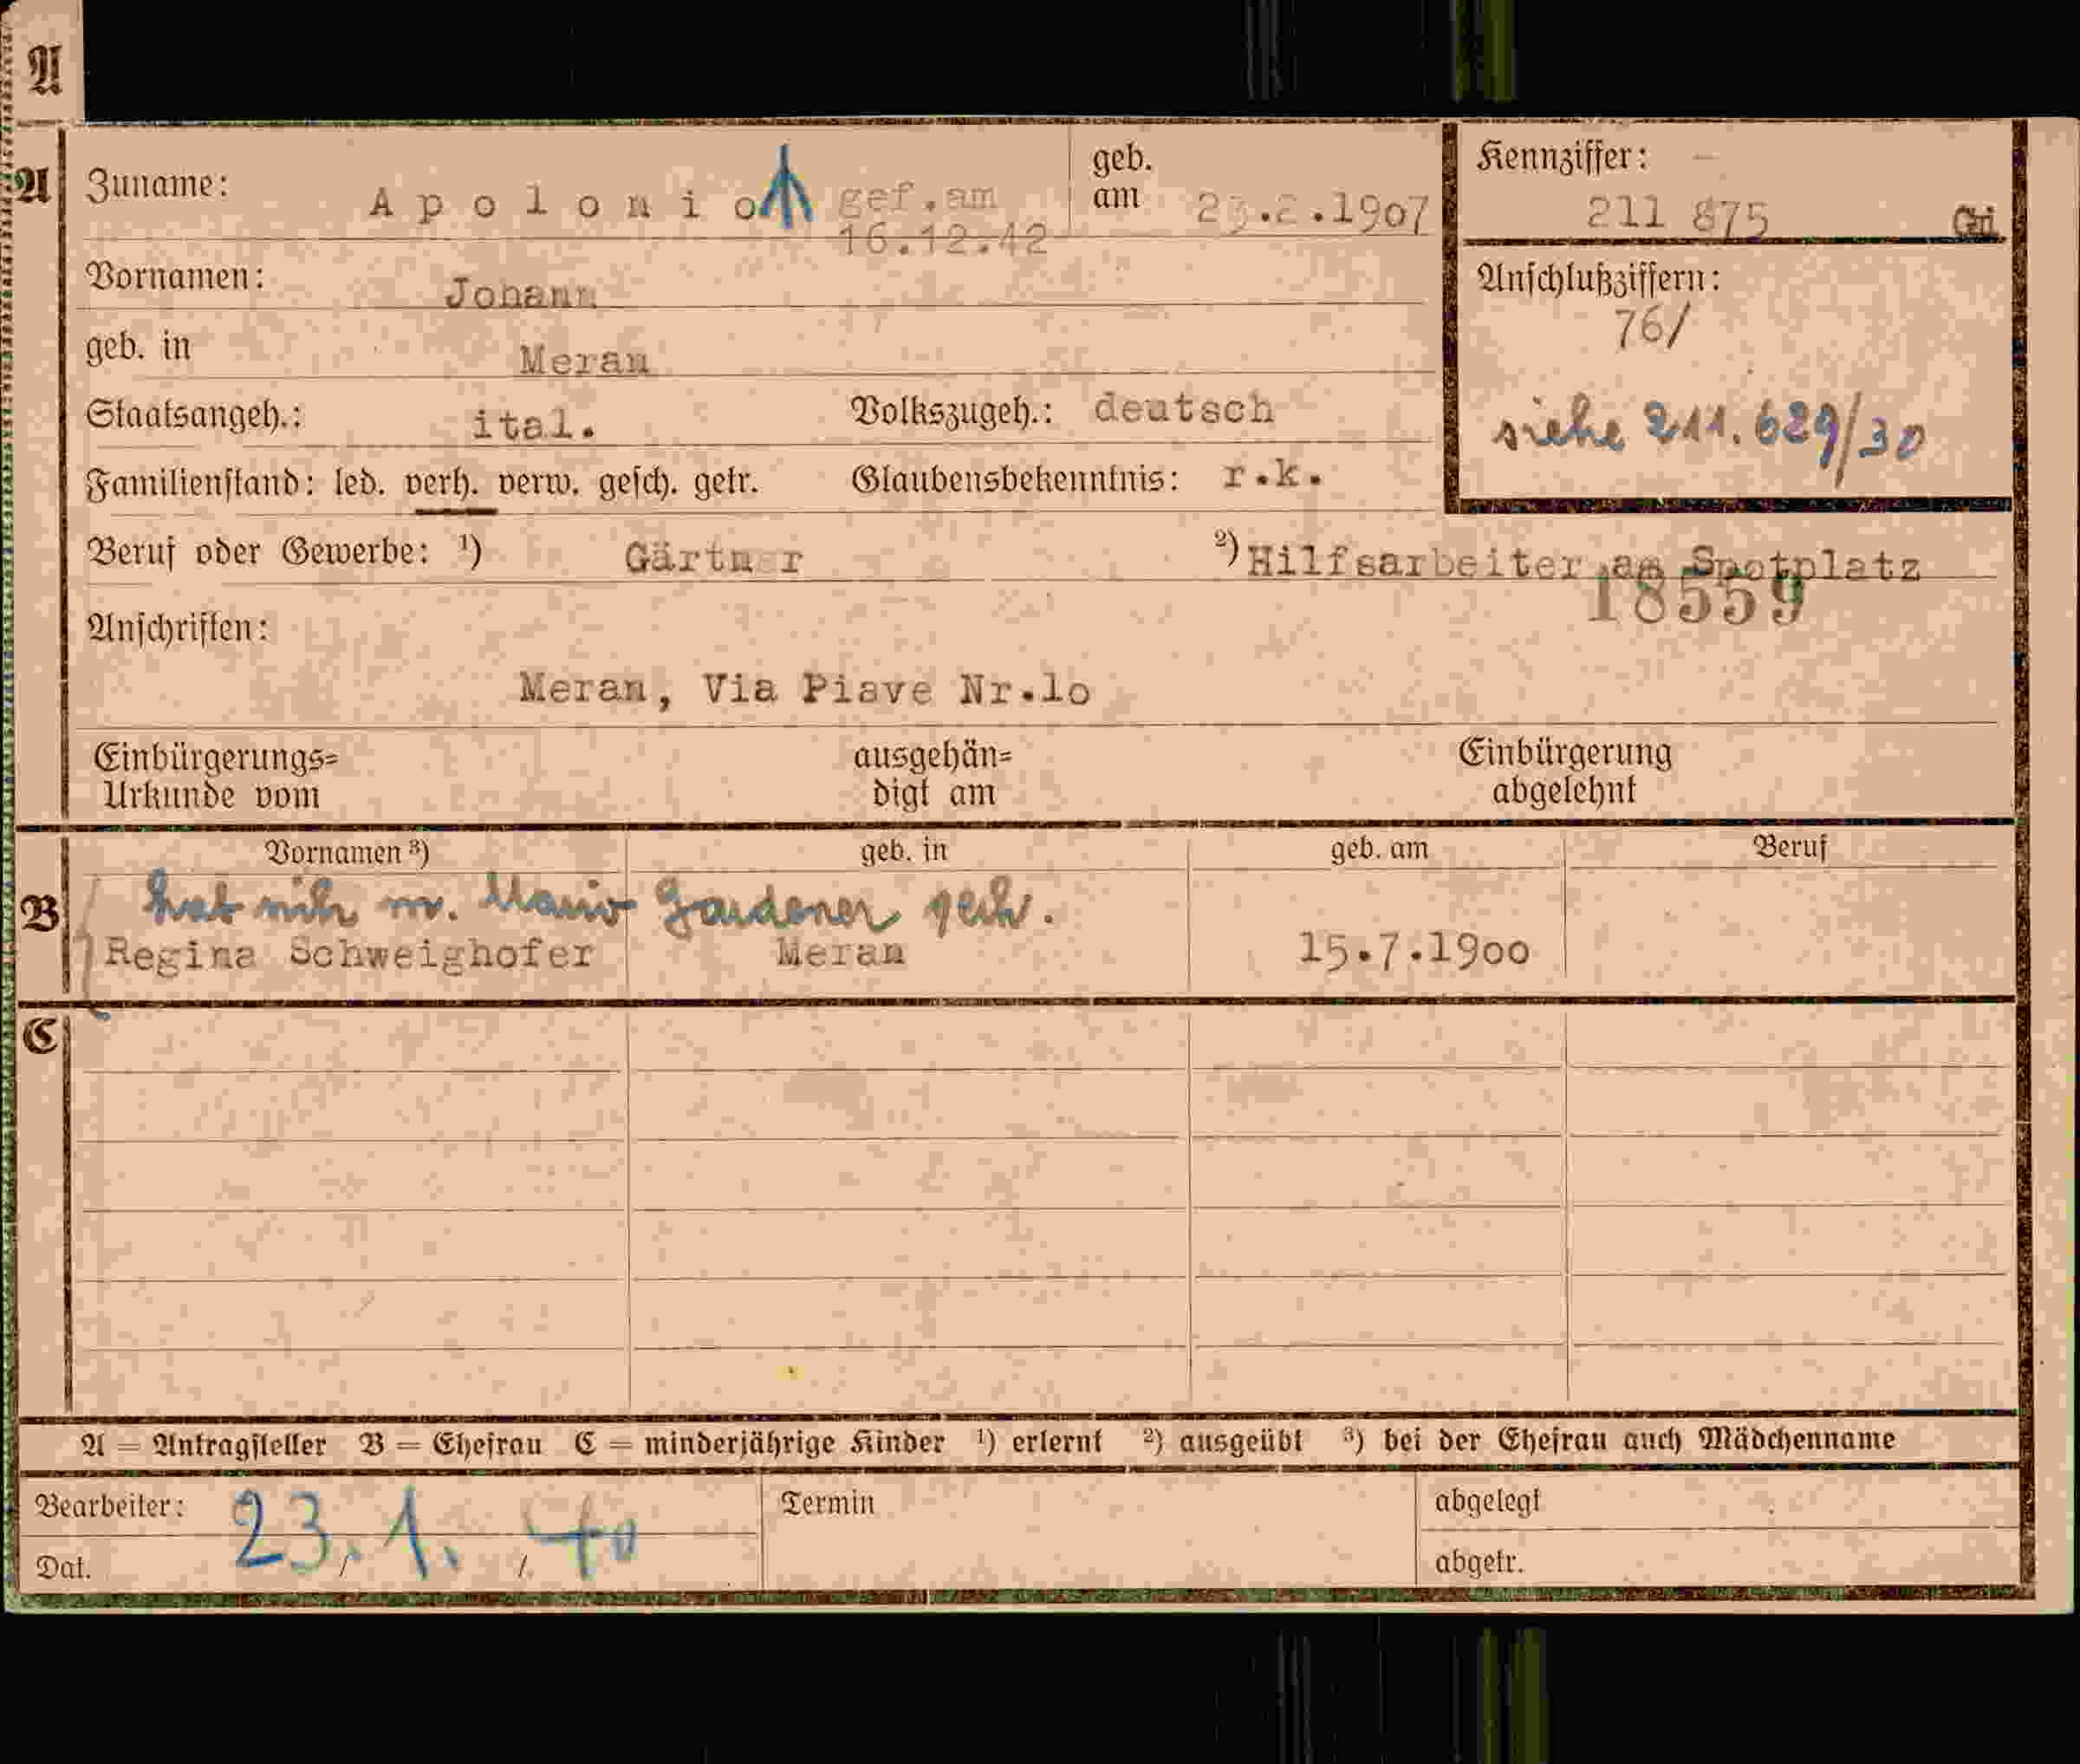 A
A Zuname: Apolonio gef.am 16.12.42 geb. am 23.2.1907
Kennziffer: 211 875
Vornamen: Johann
Anschlußziffern: 76/
geb. in Meran
Staatsangeh.: ital. Volkszugeh.: deutsch
siehe 211.629/30
Familienstand: led. verh. verw. gesch. getr. Glaubensbekenntnis: r.k.
Beruf oder Gewerbe: ¹) Gärtner ²) Hilfsarbeiter am Spotplatz
18559
Anschriften:
Meran, Via Piave Nr.1o
Einbürgerungs= ausgehän= Einbürgerung
Urkunde vom digt am abgelehnt
Vornamen ³) geb. in geb. am Beruf
B hat sich m. Gardener
Regina Schweighofer Meran 15.7.1900
C
A = Antragsteller B = Ehefrau C = minderjährige Kinder ¹) erlernt ²) ausgeübt ³) bei der Ehefrau auch Mädchenname
Bearbeiter: Termin abgelegt
Dat. 23. 1. 40 abgetr.